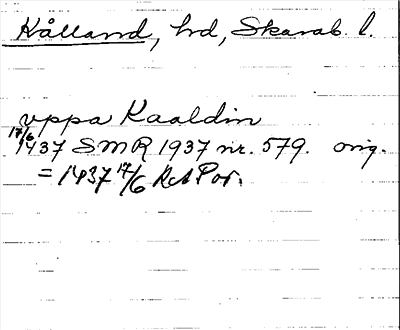 Kålland, hd, Skarab. l.
vppa Kaaldin
17/6 1437 SMR 1937 nr. 579. orig.
= 1437 17/6 RA Por.